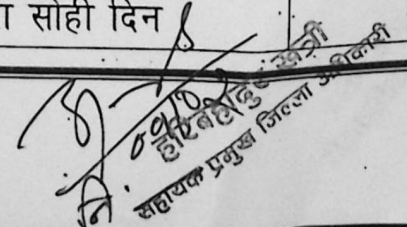 ा सोही दिन
हरिबहादुर खत्री
सहायक प्रमुख जिल्ला अधिकारी
नि.